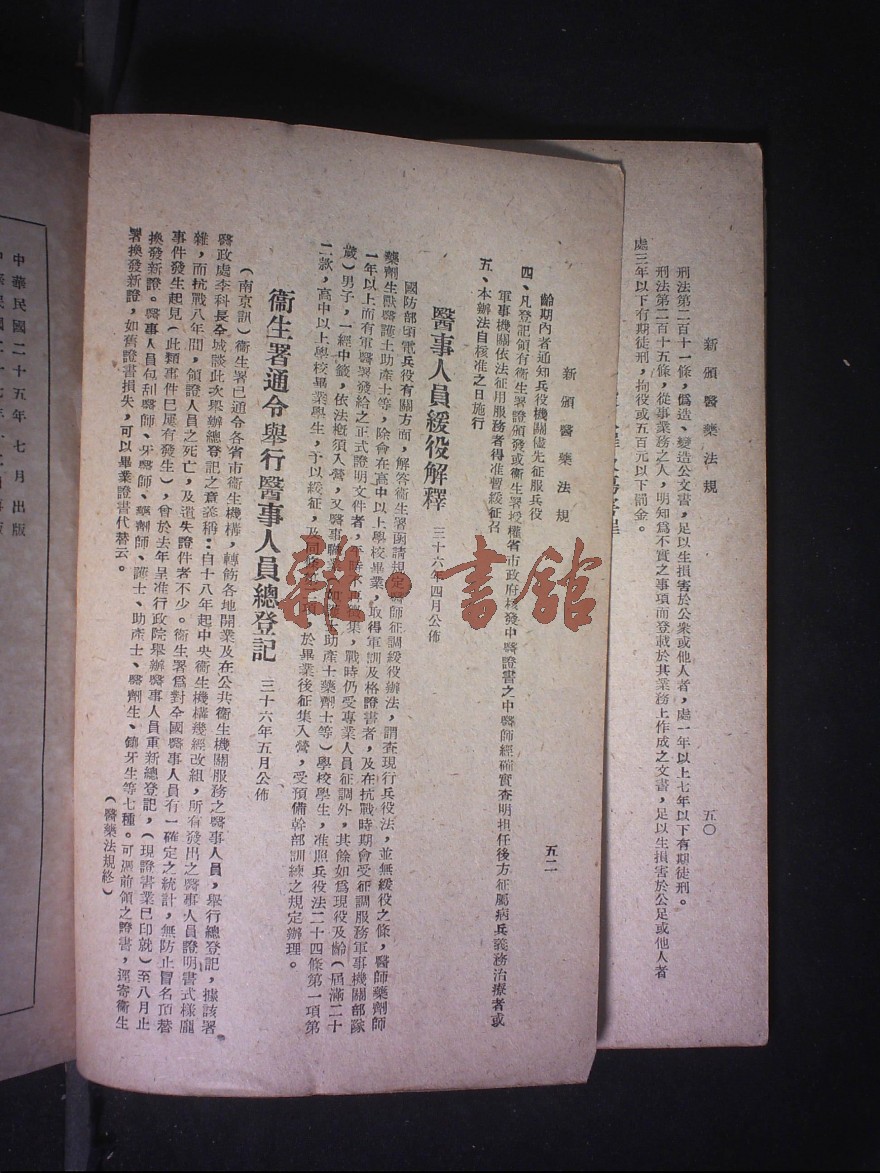 新頒醫藥法規
五〇
刑法第二百十一條，僞造、變造公文書，足以生損害於公衆或他人者，處一年以上七年以下有期徒刑。
刑法第二百十五條，從事業務之人，明知爲不實之事項而登載於其業務上作成之文書，足以生損害於公足或他人者
處三年以下有期徒刑，拘役或五百元以下罰金。
新頒醫藥法規
五二
齡期內者通知兵役機關儘先征服兵役
四、凡登記領有衞生署證頒發或衞生署授權省市政府核發中醫證書之中醫師經確實查明担任後方征屬病兵義務治療者或
軍事機關依法征用服務者得准暫緩征召
五、本辦法自核准之日施行
醫事人員緩役解釋 三十六年四月公佈
國防部頃電兵役有關方面，解答衞生署函請規定醫師征調緩役辦法，謂查現行兵役法，並無緩役之條，醫師藥劑師
藥劑生獸醫護士助產士等，除會在高中以上學校畢業，取得軍訓及格證書者，及在抗戰時期會受征調服務軍事機關部隊
一年以上而有軍醫署發給之正式證明文件者，集，戰時仍受專業人員征調外，其餘如爲現役及齡（屆滿二十
歲）男子，一經中籤，依法槪須入營，又醫事職業助產士藥劑士等）學校學生，准照兵役法二十四條第一項第
二款，高中以上學校畢業學生，予以緩征，及同於畢業後征集入營，受預備幹部訓練之規定辦理。
衞生署通令舉行醫事人員總登記 三十六年五月公佈
（南京訊）衞生署已通令各省市衞生機構，轉飭各地開業及在公共衞生機關服務之醫事人員，舉行總登記，據該署
醫政處李科長全城談此次舉辦總登記之意義稱：自十八年起中央衞生機構幾經改組，所有發出之醫事人員證明書式樣龐
雜，而抗戰八年間，領證人員之死亡，及遺失證件者不少。衞生署爲對全國醫事人員有一確定之統計，無防止冒名頂替
事件發生起見（此類事件已屢有發生），會於去年呈准行政院舉辦醫事人員重新總登記，（現證書業已印就）至八月止
換發新證。醫事人員包刮醫師、牙醫師、藥劑師、護士、助產士、醫劑生、鑲牙生等七種。可憑前領之證書，逕寄衞生
署換發新證，如舊證書損失，可以畢業證書代替云。
（醫藥法規終）
中華民國二十五年七月出版
報·書館